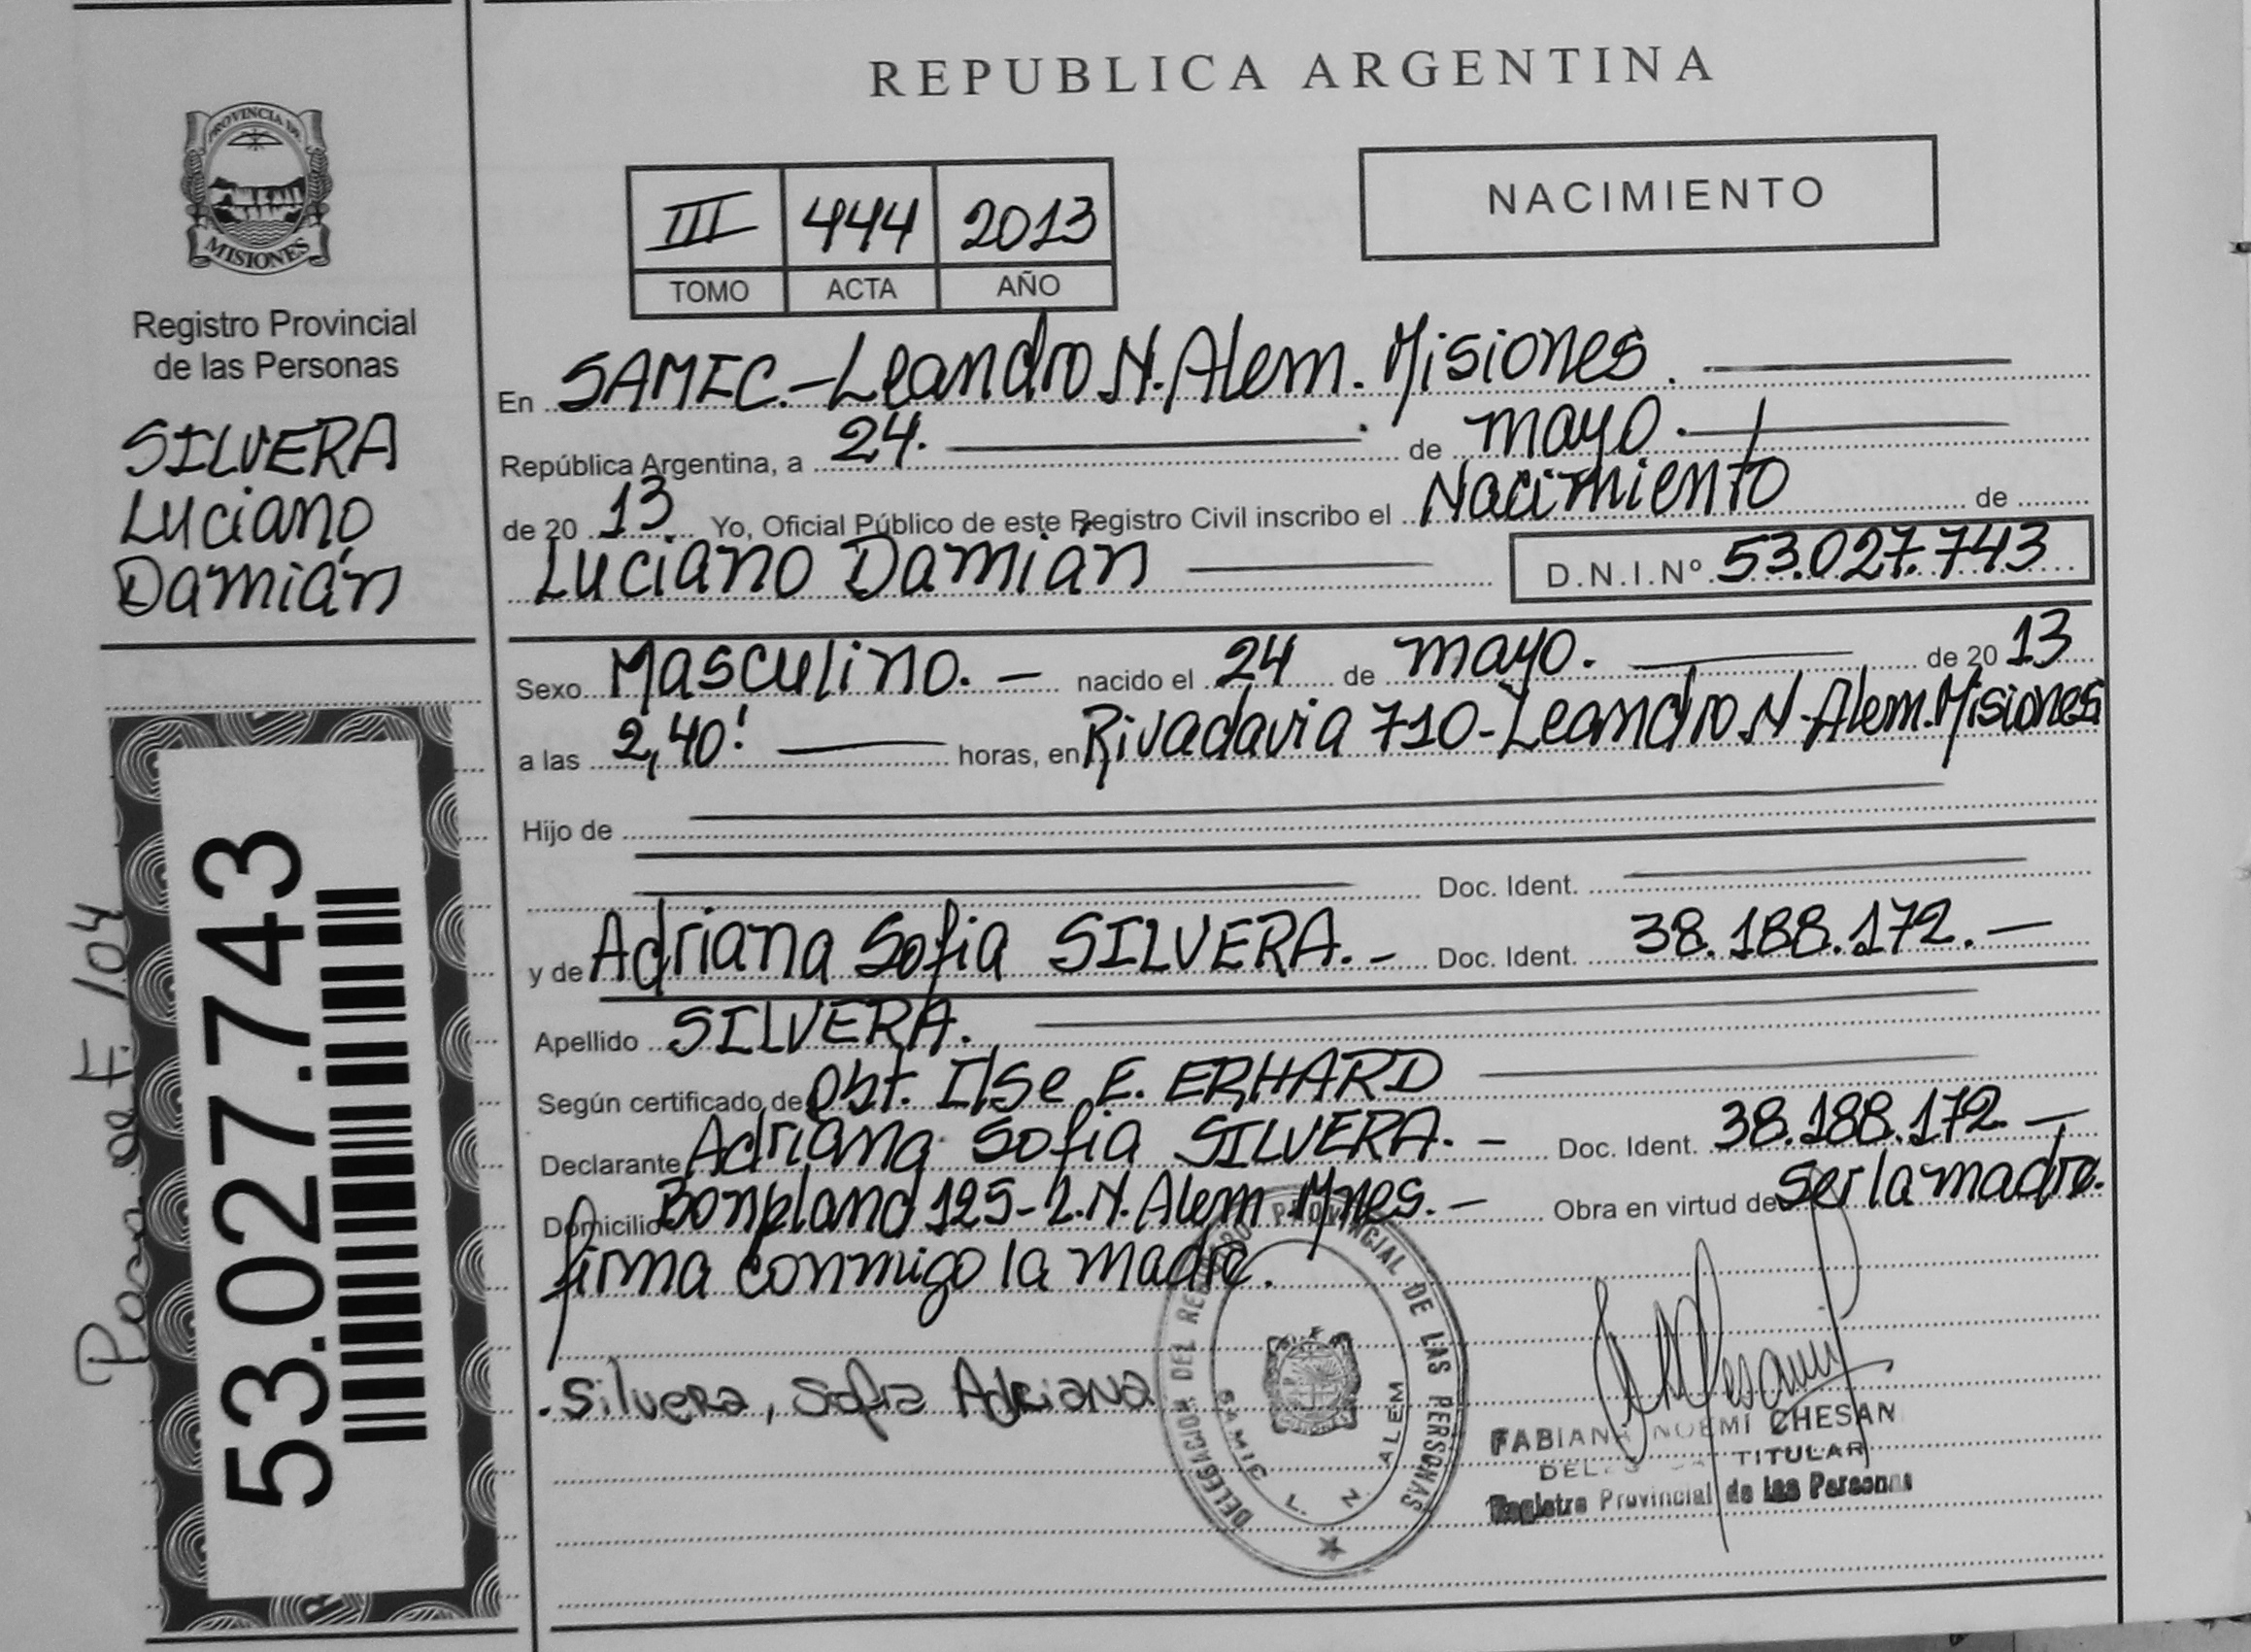 REPUBLICA ARGENTINA
PROVINCIA DE
MISIONES
Registro Provincial
de las Personas
SILVERA
Luciano
Damián
53.027.743
III 444 2013
TOMO ACTA AÑO
NACIMIENTO
En SAMIC.-Leandro N. Alem. Misiones.
República Argentina, a 24. de mayo.
de 20 13 Yo, Oficial Público de este Registro Civil inscribo el Nacimiento de
Luciano Damián D.N.I.Nº 53.027.743
Sexo Masculino. - nacido el 24 de mayo. de 20 13
a las 2,40! horas, en Rivadavia 710-Leandro N. Alem. Misiones
Hijo de
Doc. Ident.
y de Adriana Sofia SILVERA. - Doc. Ident. 38.188.172. -
Apellido SILVERA.
Según certificado de Obt. Ilse E. ERHARD
Declarante Adriana Sofia SILVERA. - Doc. Ident. 38.188.172. -
Domicilio Bonpland 125-L.N. Alem Mnes. - Obra en virtud de ser la madre.
firma conmigo la madre.
Silvera, Sofia Adriana
DELEGACION DEL REGISTRO PROVINCIAL DE LAS PERSONAS
SAMIC L. N. ALEM
FABIANA NOEMI CHESAN
TITULAR
Registro Provincial de las Personas